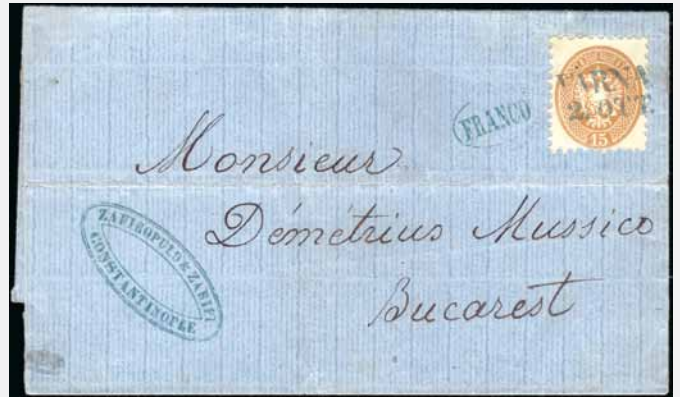 VARNA
2. OCT.
15
FRANCO
Monsieur
Démétrius Mussico
Bucarest
ZAFIROPULO & ZARIFI
CONSTANTINOPLE